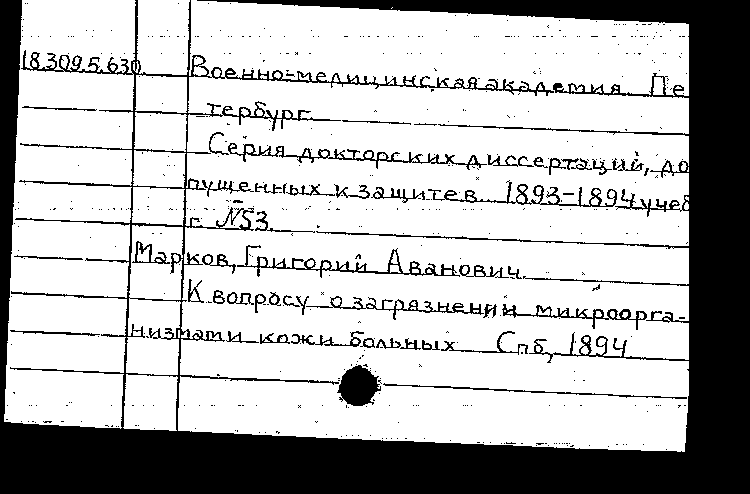 18.309.5.630. Военно-медицинская академия. Пе
тербург.
Серия докторских диссертаций, до
пущенных к защите в 1893-1894 учеб
г. №53.
Марков, Григорий Аванович.
К вопросу о загрязнении микроорга-
низмами кожи больных Спб, 1894